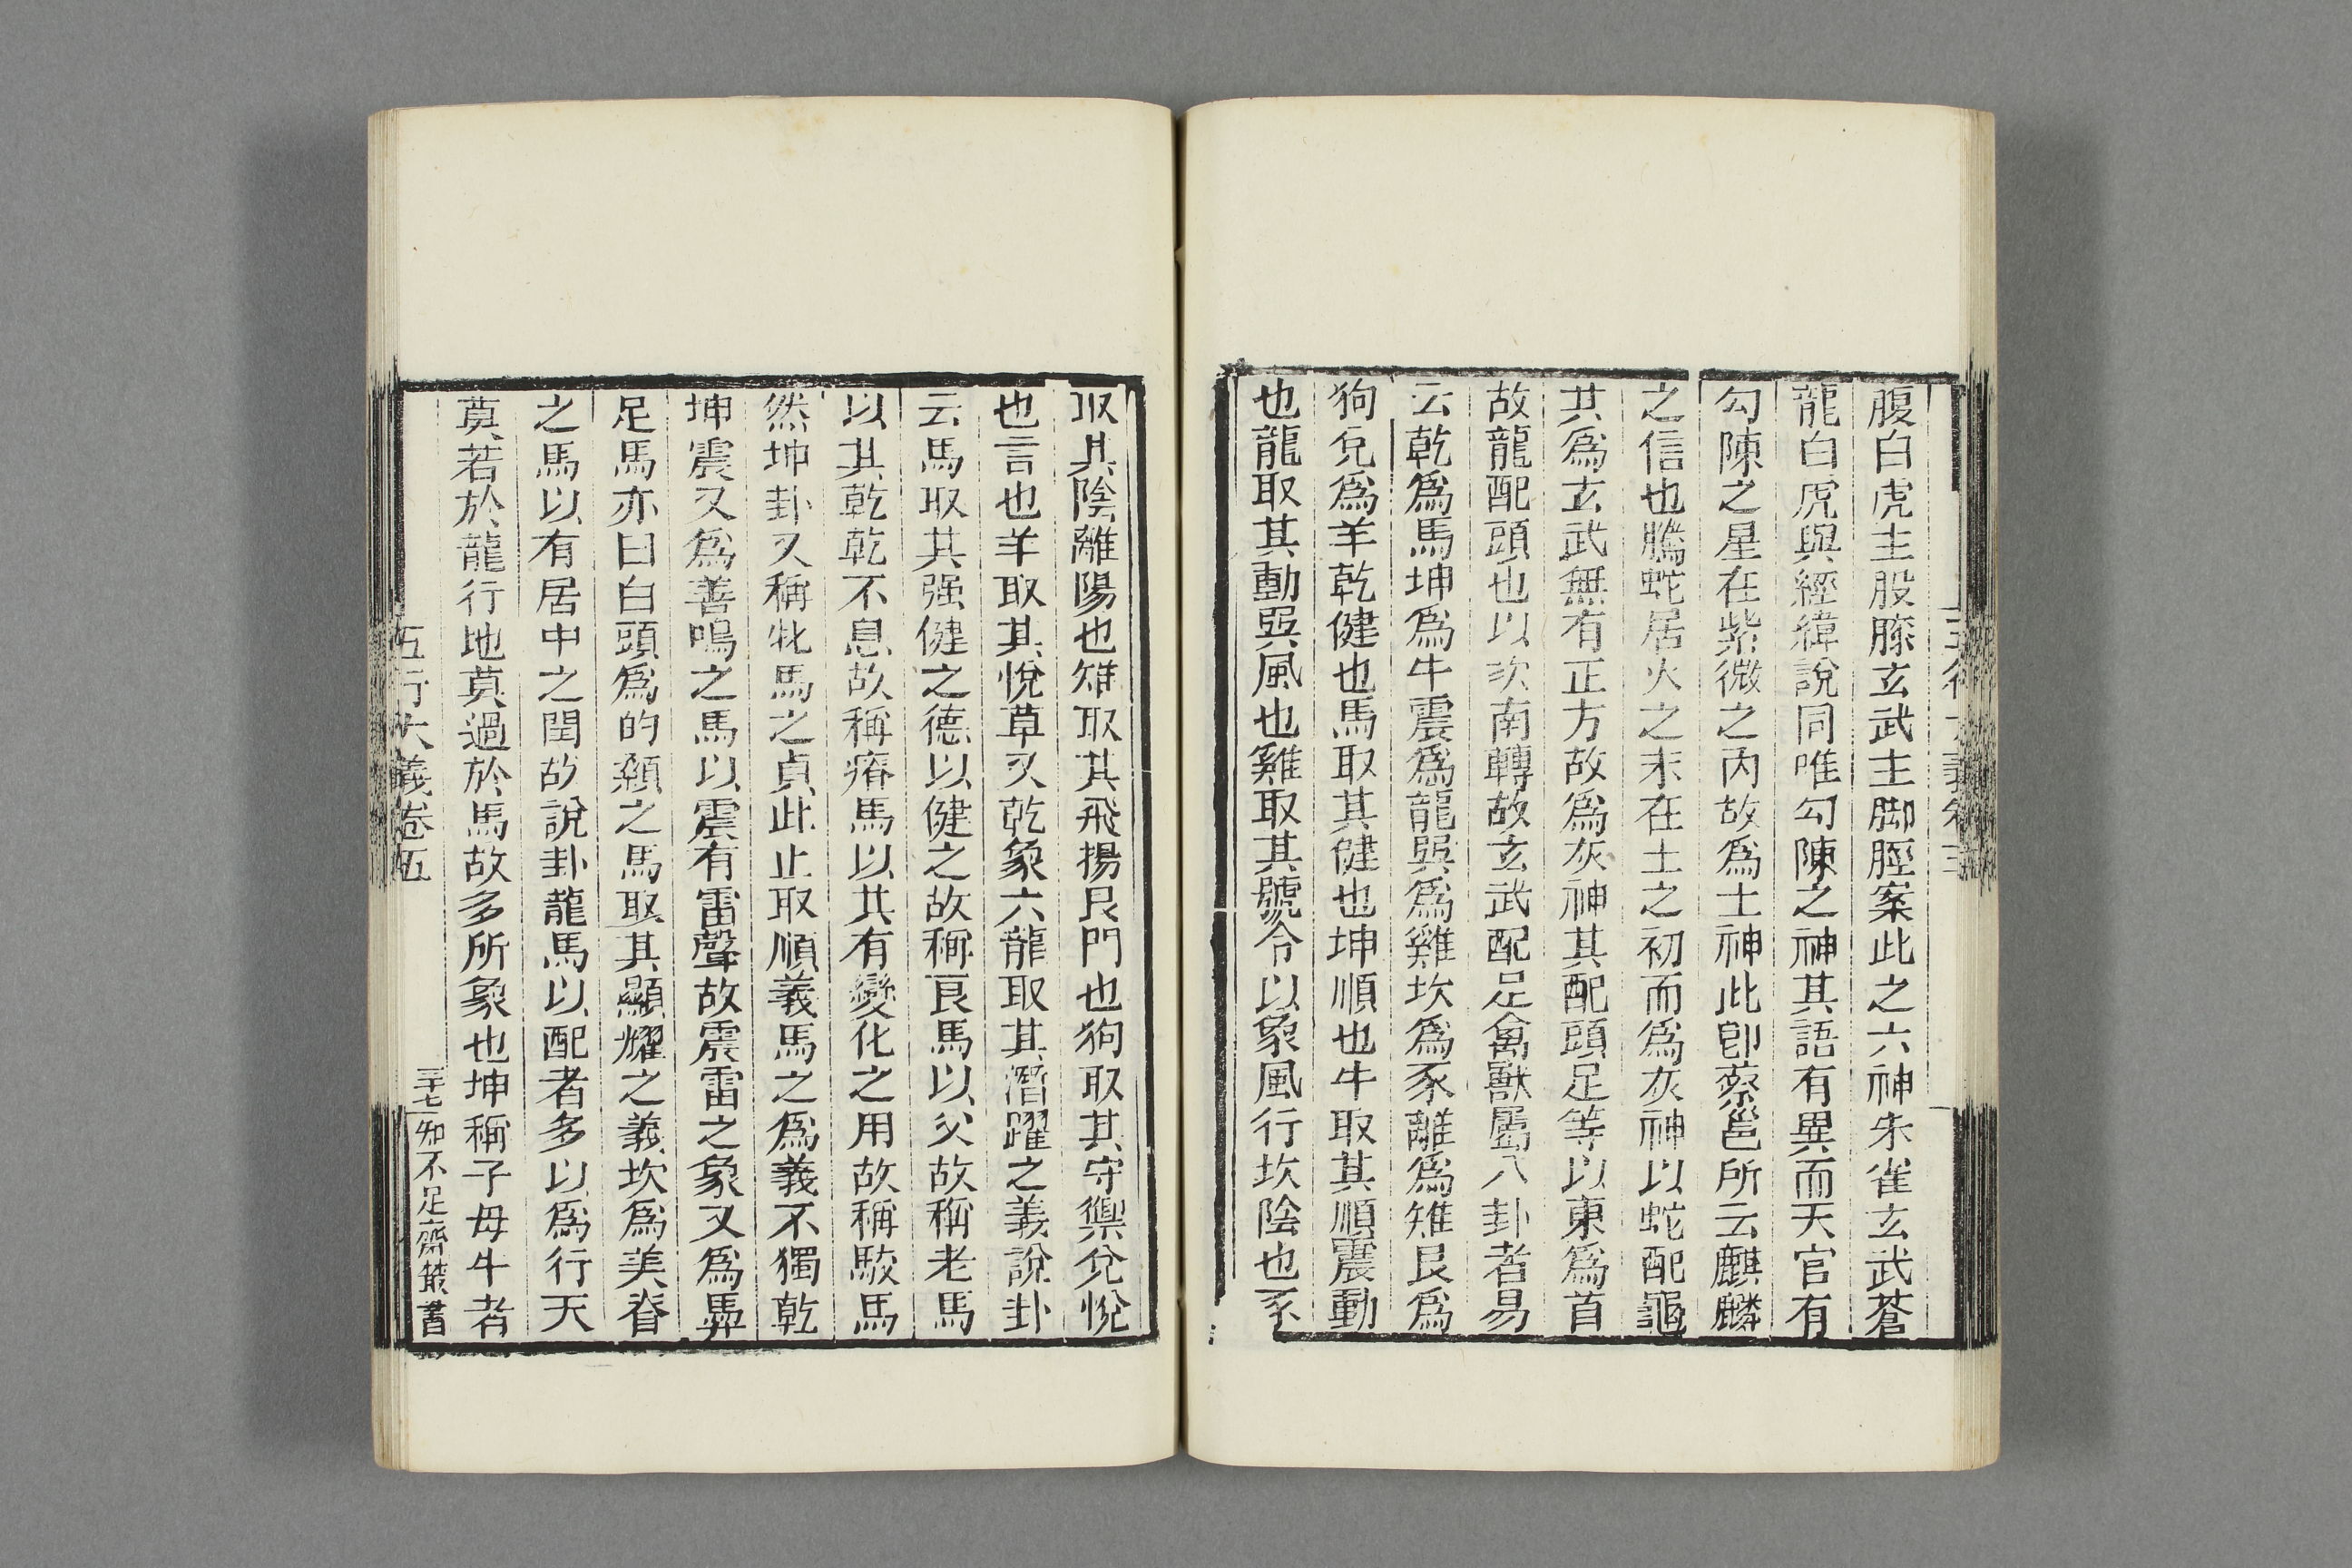 腹白虎主股膝玄武主脚脛案此之六神朱雀玄武蒼
龍白虎與經緯說同唯勾陳之神其語有異而天官有
勾陳之星在紫微之內故爲土神此卽蔡邕所云麒麟
之信也騰蛇居火之末在土之初而爲灰神以蛇配龜
共爲玄武無有正方故爲灰神其配頭足等以東爲首
故龍配頭也以次南轉故玄武配足禽獸屬八卦者易
云乾爲馬坤爲牛震爲龍巽爲雞坎爲豕離爲雉艮爲
狗兌爲羊乾健也馬取其健也坤順也牛取其順震動
也龍取其動巽風也雞取其號令以象風行坎陰也豕
取其陰離陽也雉取其飛揚艮門也狗取其守禦兌悅
也言也羊取其悅草又乾象六龍取其潛躍之義說卦
云馬取其强健之德以健之故稱良馬以父故稱老馬
以其乾乾不息故稱瘠馬以其有變化之用故稱駮馬
然坤卦又稱牝馬之貞此止取順義馬之爲義不獨乾
坤震又爲善鳴之馬以震有雷聲故震雷之象又爲馵
足馬亦曰白頭爲的顙之馬取其顯耀之義坎爲美脊
之馬以有居中之閏故說卦龍馬以配者多以爲行天
莫若於龍行地莫過於馬故多所象也坤稱子母牛者
五行大義卷五
三十七
知不足齋叢書